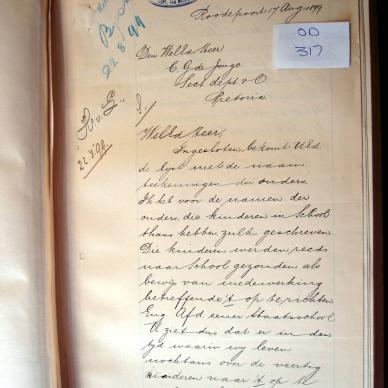 22/8/99
Roodepoort 17 Aug 1899
OD
317
Den WelEd Heer
C. G. de Jonge
Sect dept v O
Pretoria
22.8.99
WelEd Heer,
Ingesloten bekomt UEd
de lijst met de naam
teekeningen der ouders.
Ik heb voor de namen der
ouders, die kinderen in School
thans hebben, zulks geschreven
Die kinderen werden reeds
naar School gezonden als
bewijs van medewerking
betreffende 't op te richten
Eng Afd eener Staatsschool.
U ziet dus dat er in den
tijd waarin wij leven
nochtans over de veertig
kinderen naar 't op te